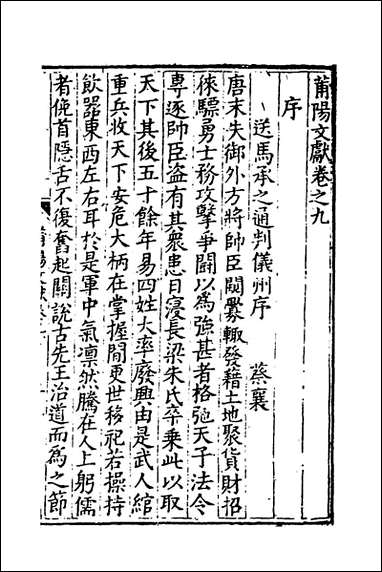 莆陽文獻卷之九
序
送馬承之通判儀州序 蔡襄
唐末失御外方將帥臣闚釁輙發籍土地聚貨財招
徠驃勇士務攻擊爭鬪以為強甚者格弛天子法令
專逐帥臣盜有其衆患日寖長梁朱氏卒乗此以取
天下其後五十餘年易四姓大率廢興由是武人綰
重兵攻天下安危大柄在掌握間更世移祀若操持
飲器東西左右耳於是軍中氣凛然騰在人上躬儒
者俛首隠舌不復奮起關說古先王治道而為之節